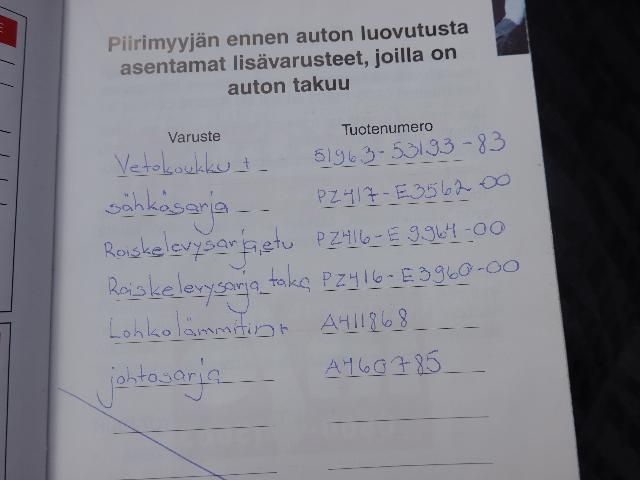 Piirimyyjän ennen auton luovutusta
asentamat lisävarusteet, joilla on
auton takuu
Varuste Tuotenumero
Vetokoukku + 51963-53193-83
sähkösarja PZ417-E3562-00
Roiskelevysarja, etu PZ416-E9964-00
Roiskelevysarja taka PZ416-E3960-00
Lohkolämmitin + A411868
johtosarja A460785